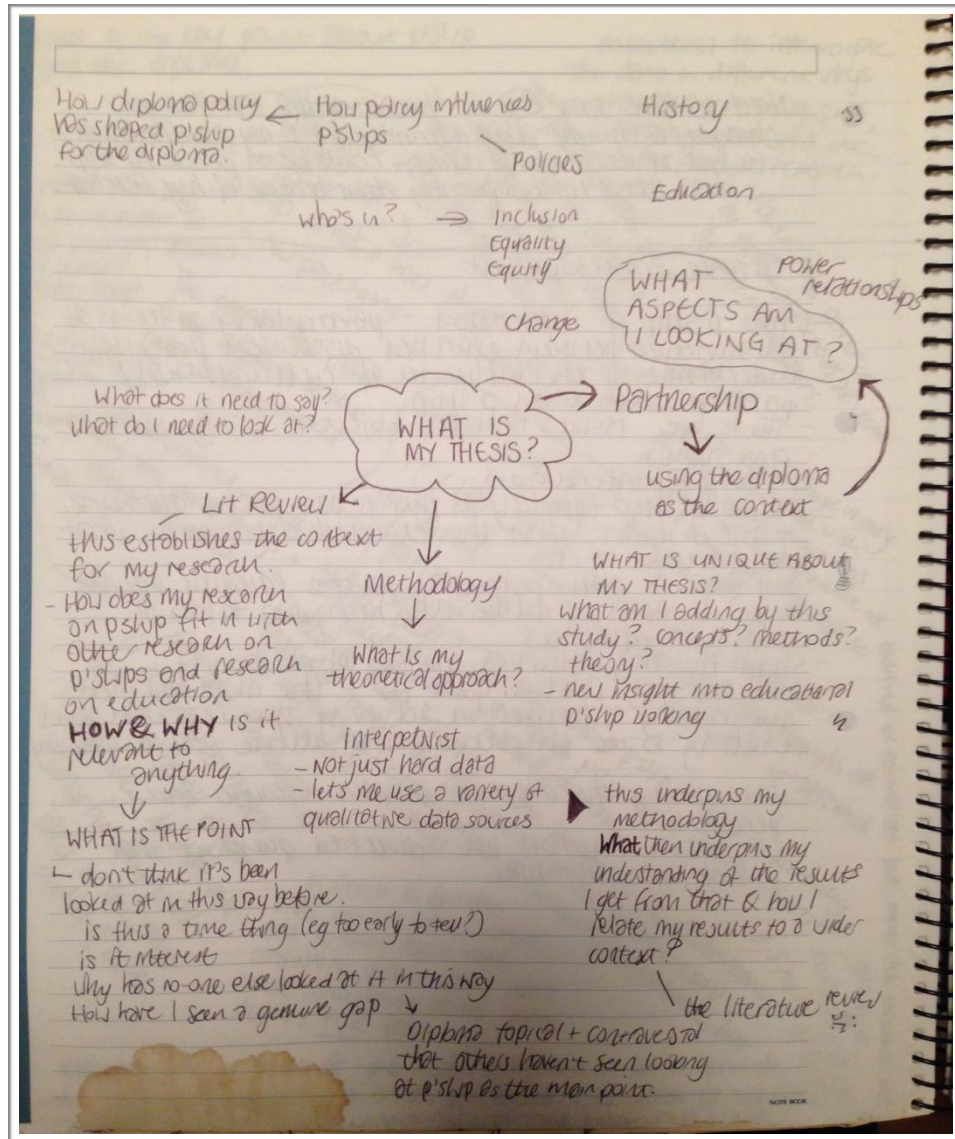 How diploma policy
has shaped p'ship
for the diploma.
How policy influences
p'ships
Policies
History
Education
who's in?
Inclusion
Equality
Equity
Change
WHAT
ASPECTS AM
I LOOKING AT?
power
relationships
What does it need to say?
what do I need to look at?
WHAT IS
MY THESIS?
Partnership
using the diploma
as the context
Lit Review
this establishes the context
for my research.
- How does my research
on pship fit in with
other research on
p'ships and research
on education
HOW & WHY is it
relevant to
anything.
WHAT IS THE POINT
don't think it's been
looked at in this way before.
is this a time thing (eg too early to tell?)
is it interest
why has no-one else looked at it in this way
How have I seen a genuine gap
Diploma topical + controversial
that others haven't seen looking
at p'ship as the main point.
Methodology
What is my
theoretical approach?
interpetivist
- Not just hard data
- lets me use a variety of
qualitative data sources
WHAT IS UNIQUE ABOUT
MY THESIS?
what am I adding by this
study? concepts? methods?
theory?
- new insight into educational
p'ship working
this underpins my
methodology
What then underpins my
understanding of the results
I get from that & how I
relate my results to a wider
context?
the literature review
NOTE BOOK